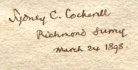 Sydney C. Cockerell
Richmond Surrey
March 24 1898.